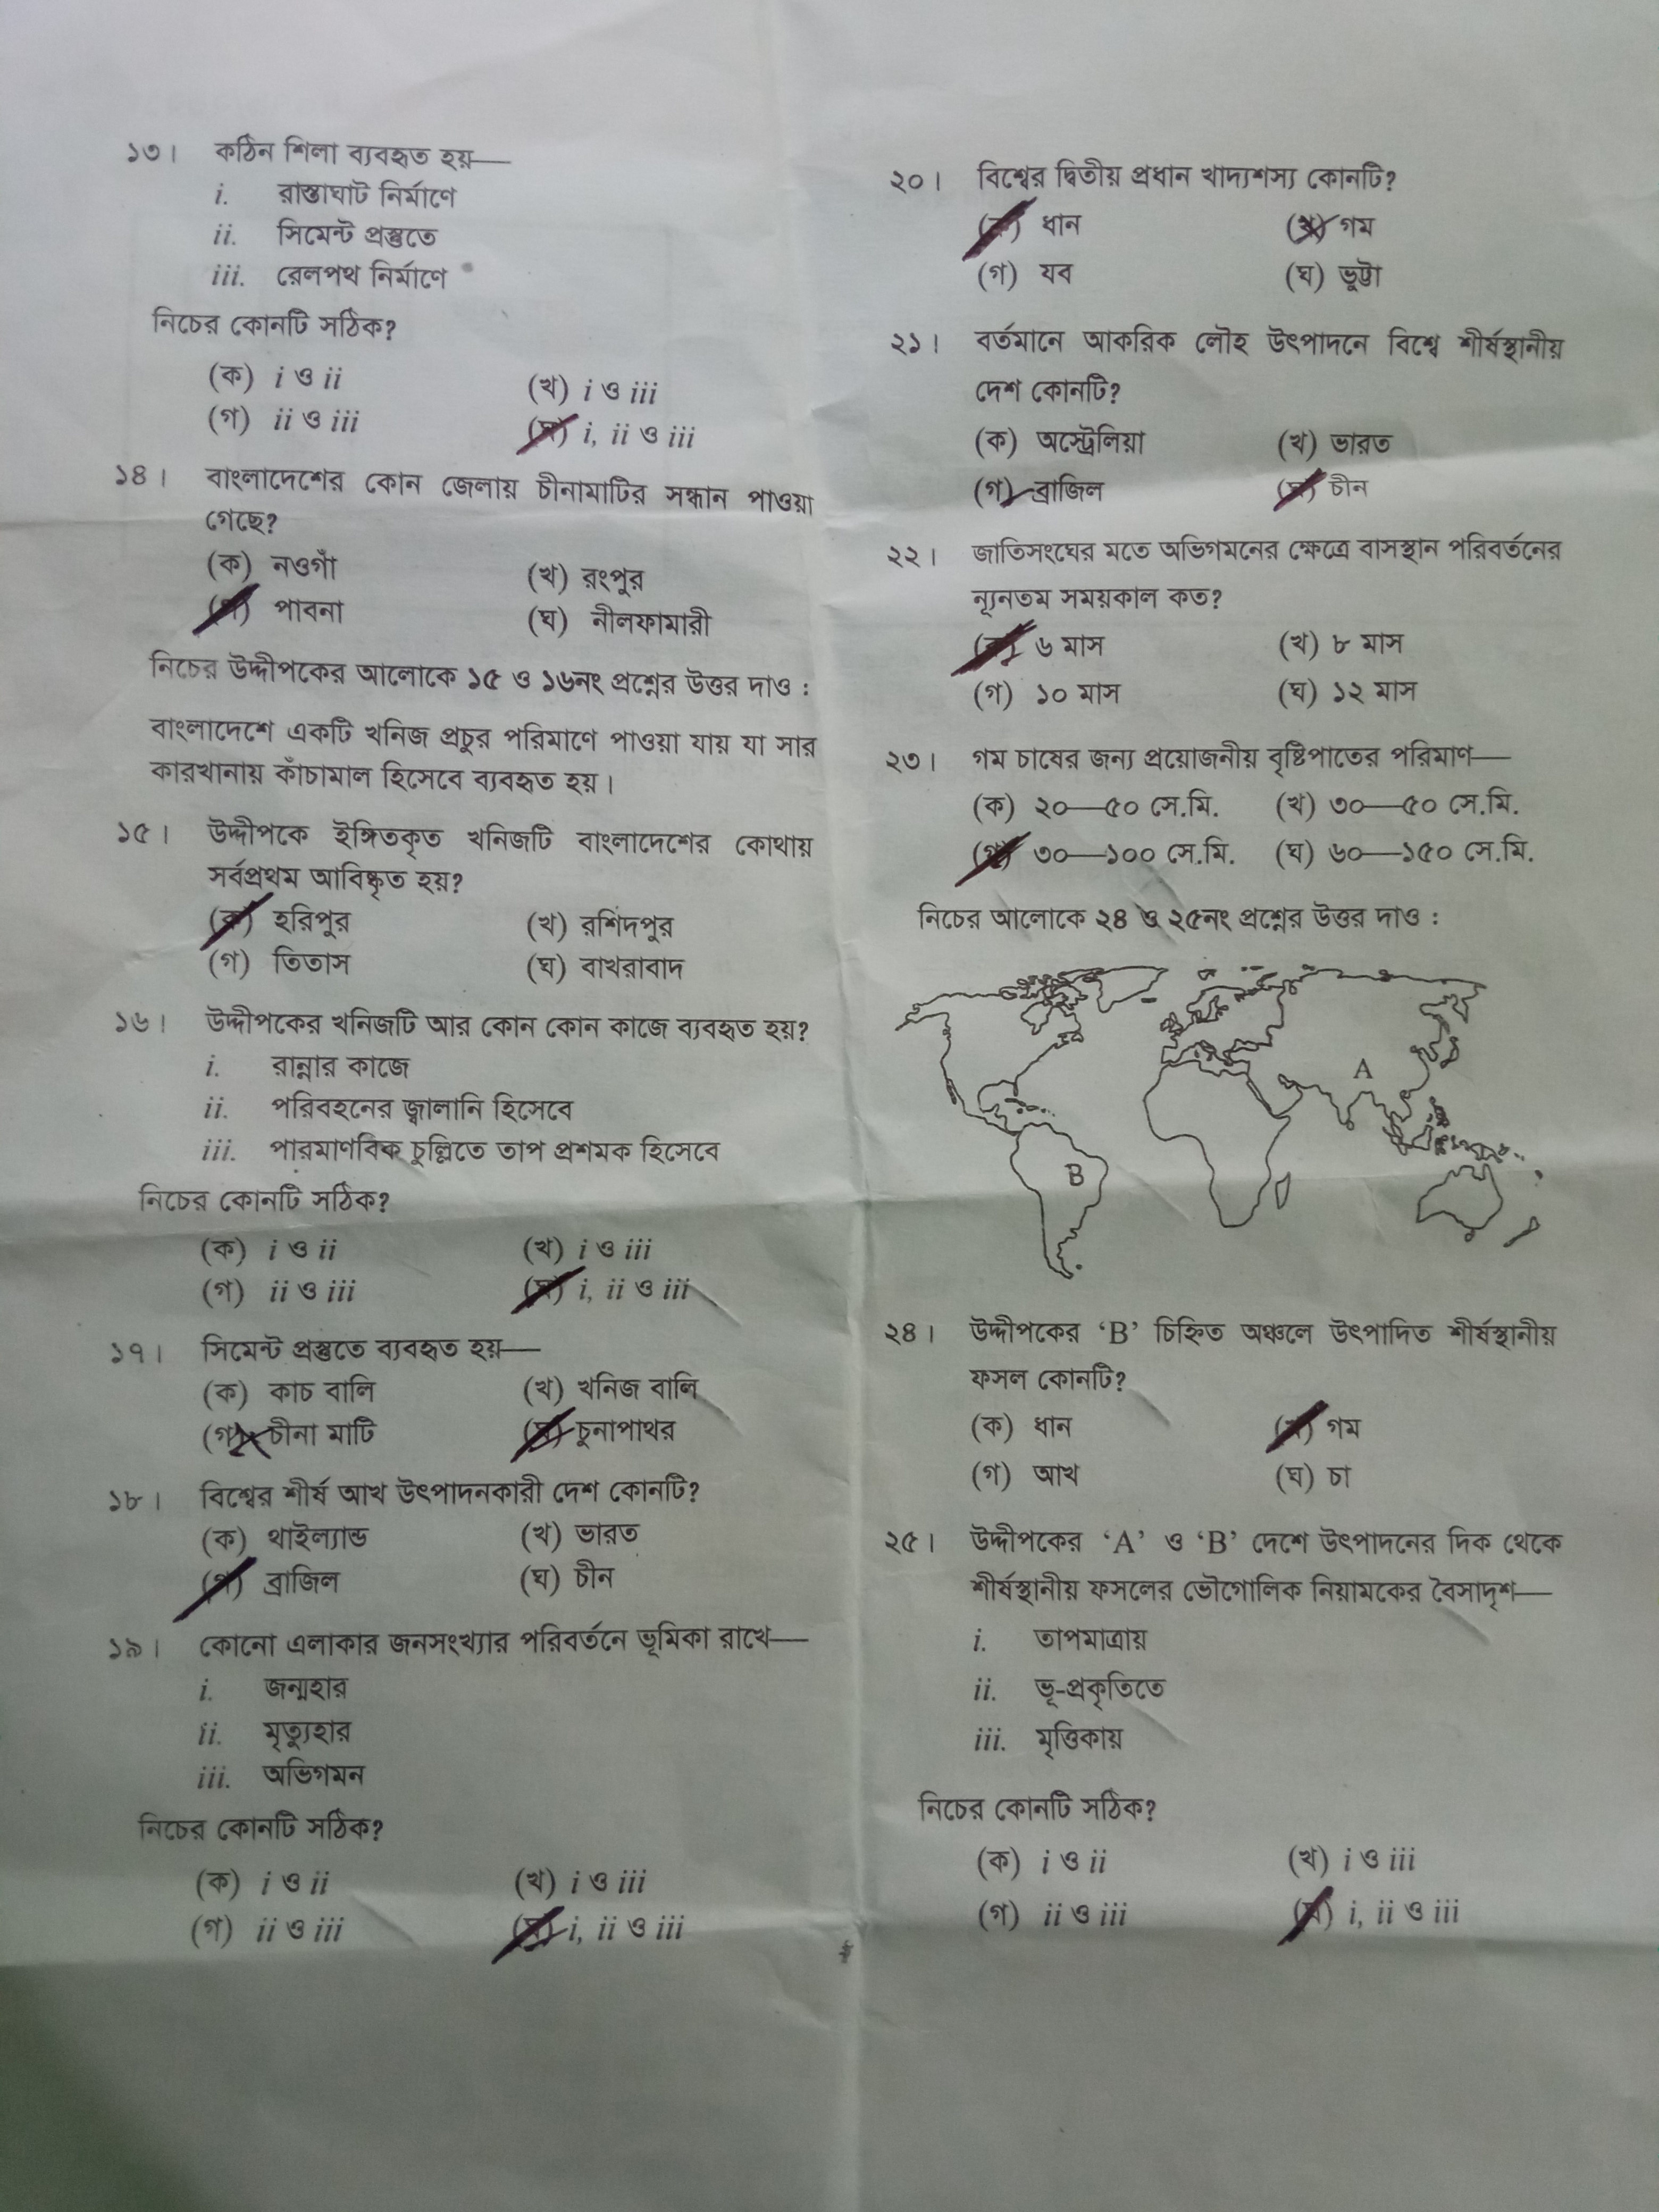 ১৩। কঠিন শিলা ব্যবহৃত হয়—
i. রাস্তাঘাট নির্মাণে
ii. সিমেন্ট প্রস্তুতে
iii. রেলপথ নির্মাণে
নিচের কোনটি সঠিক?
(ক) i ও ii (খ) i ও iii
(গ) ii ও iii (ঘ) i, ii ও iii
১৪। বাংলাদেশের কোন জেলায় চীনামাটির সন্ধান পাওয়া
গেছে?
(ক) নওগাঁ (খ) রংপুর
(গ) পাবনা (ঘ) নীলফামারী
নিচের উদ্দীপকের আলোকে ১৫ ও ১৬নং প্রশ্নের উত্তর দাও :
বাংলাদেশে একটি খনিজ প্রচুর পরিমাণে পাওয়া যায় যা সার
কারখানায় কাঁচামাল হিসেবে ব্যবহৃত হয়।
১৫। উদ্দীপকে ইঙ্গিতকৃত খনিজটি বাংলাদেশের কোথায়
সর্বপ্রথম আবিষ্কৃত হয়?
(ক) হরিপুর (খ) রশিদপুর
(গ) তিতাস (ঘ) বাখরাবাদ
১৬। উদ্দীপকের খনিজটি আর কোন কোন কাজে ব্যবহৃত হয়?
i. রান্নার কাজে
ii. পরিবহনের জ্বালানি হিসেবে
iii. পারমাণবিক চুল্লিতে তাপ প্রশমক হিসেবে
নিচের কোনটি সঠিক?
(ক) i ও ii (খ) i ও iii
(গ) ii ও iii (ঘ) i, ii ও iii
১৭। সিমেন্ট প্রস্তুতে ব্যবহৃত হয়—
(ক) কাচ বালি (খ) খনিজ বালি
(গ) চীনা মাটি (ঘ) চুনাপাথর
১৮। বিশ্বের শীর্ষ আখ উৎপাদনকারী দেশ কোনটি?
(ক) থাইল্যান্ড (খ) ভারত
(গ) ব্রাজিল (ঘ) চীন
১৯। কোনো এলাকার জনসংখ্যার পরিবর্তনে ভূমিকা রাখে—
i. জন্মহার
ii. মৃত্যুহার
iii. অভিগমন
নিচের কোনটি সঠিক?
(ক) i ও ii (খ) i ও iii
(গ) ii ও iii (ঘ) i, ii ও iii
২০। বিশ্বের দ্বিতীয় প্রধান খাদ্যশস্য কোনটি?
(ক) ধান (খ) গম
(গ) যব (ঘ) ভুট্টা
২১। বর্তমানে আকরিক লৌহ উৎপাদনে বিশ্বে শীর্ষস্থানীয়
দেশ কোনটি?
(ক) অস্ট্রেলিয়া (খ) ভারত
(গ) ব্রাজিল (ঘ) চীন
২২। জাতিসংঘের মতে অভিগমনের ক্ষেত্রে বাসস্থান পরিবর্তনের
ন্যূনতম সময়কাল কত?
(ক) ৬ মাস (খ) ৮ মাস
(গ) ১০ মাস (ঘ) ১২ মাস
২৩। গম চাষের জন্য প্রয়োজনীয় বৃষ্টিপাতের পরিমাণ—
(ক) ২০—৫০ সে.মি. (খ) ৩০—৫০ সে.মি.
(গ) ৩০—১০০ সে.মি. (ঘ) ৬০—১৫০ সে.মি.
নিচের আলোকে ২৪ ও ২৫নং প্রশ্নের উত্তর দাও :
A
B
২৪। উদ্দীপকের ‘B’ চিহ্নিত অঞ্চলে উৎপাদিত শীর্ষস্থানীয়
ফসল কোনটি?
(ক) ধান (খ) গম
(গ) আখ (ঘ) চা
২৫। উদ্দীপকের ‘A’ ও ‘B’ দেশে উৎপাদনের দিক থেকে
শীর্ষস্থানীয় ফসলের ভৌগোলিক নিয়ামকের বৈসাদৃশ—
i. তাপমাত্রায়
ii. ভূ-প্রকৃতিতে
iii. মৃত্তিকায়
নিচের কোনটি সঠিক?
(ক) i ও ii (খ) i ও iii
(গ) ii ও iii (ঘ) i, ii ও iii